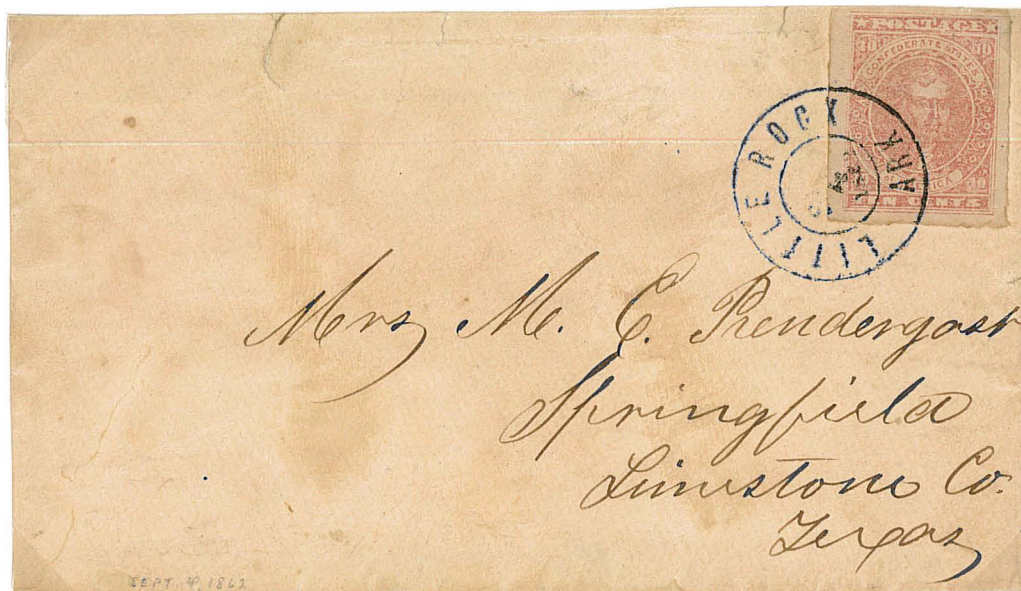 POSTAGE
10 10
CONFEDERATE STATES
OF AMERICA
10
TEN CENTS
LITTLE ROCK ARK
Mrs M. C. Prendergast
Springfield
Limestone Co.
Texas
SEPT 4, 1862